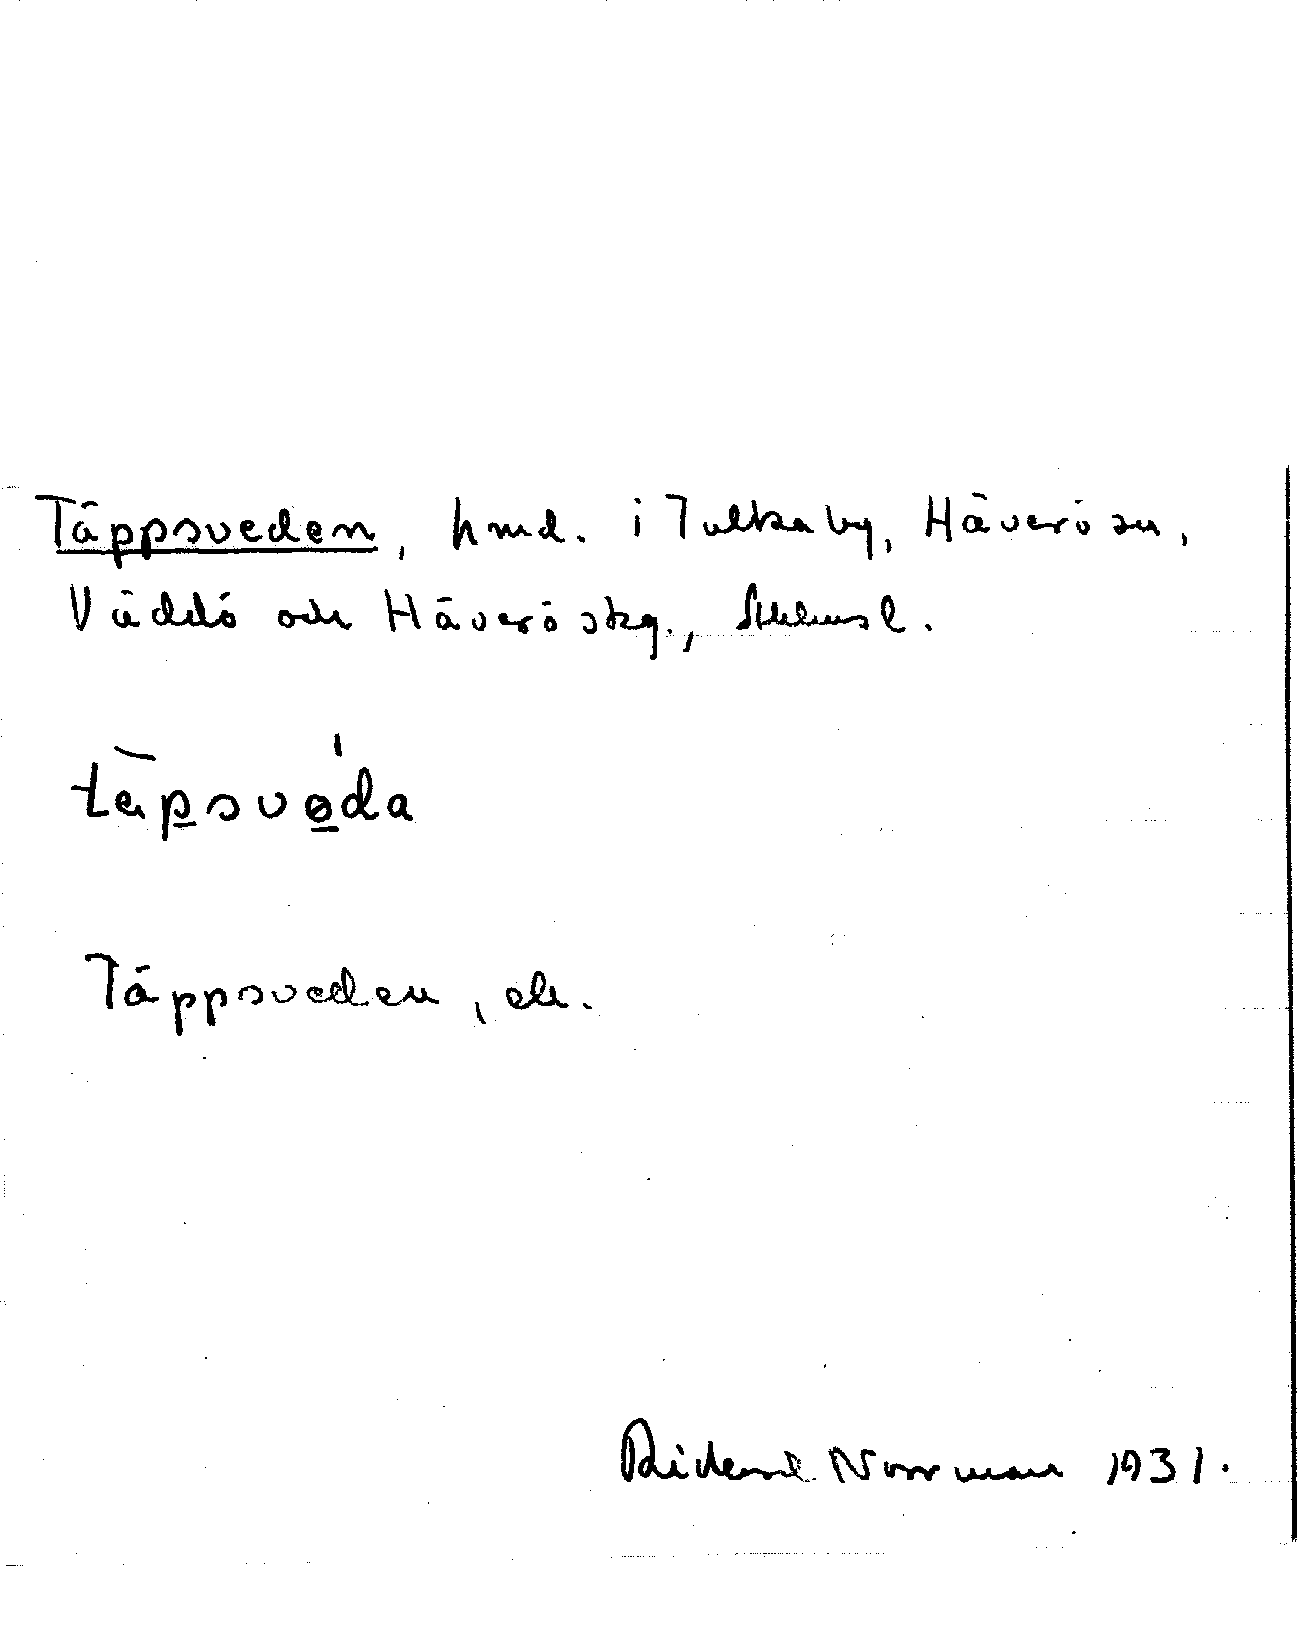 Täppsveden, hmd. i Tulkaby, Häverö sn,
Väddö och Häveröskg., Sthlmsl.
täpsvøda
Täppsveden, ek.
Rickard Norrman 1931.